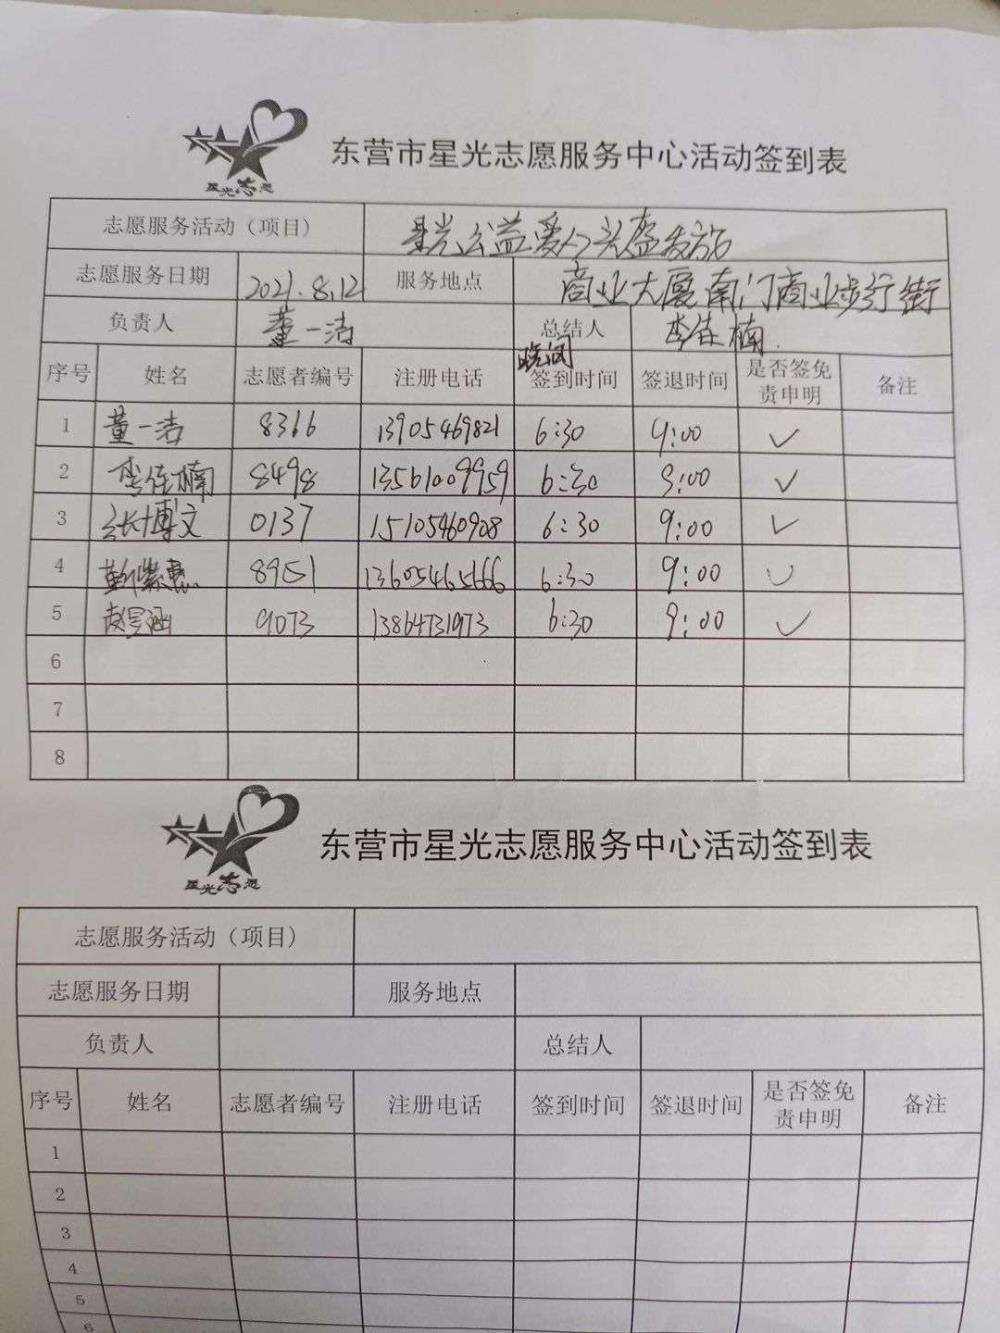 星光志愿
东营市星光志愿服务中心活动签到表
志愿服务活动（项目） 星光公益爱心头盔发放
志愿服务日期 2021.8.12 服务地点 商业大厦南门商业步行街
负责人 董一洁 总结人 李佳楠
晚间
序号 姓名 志愿者编号 注册电话 签到时间 签退时间 是否签免责申明 备注
1 董一洁 8366 13905469821 6:30 9:00 ✓
2 李佳楠 8498 13561009959 6:30 9:00 ✓
3 张博文 0137 15105460908 6:30 9:00 ✓
4 8951 13605465666 6:30 9:00 ✓
5 赵昱涵 9073 13864731973 6:30 9:00 ✓
6
7
8
星光志愿
东营市星光志愿服务中心活动签到表
志愿服务活动（项目）
志愿服务日期 服务地点
负责人 总结人
序号 姓名 志愿者编号 注册电话 签到时间 签退时间 是否签免责申明 备注
1
2
3
4
5
6